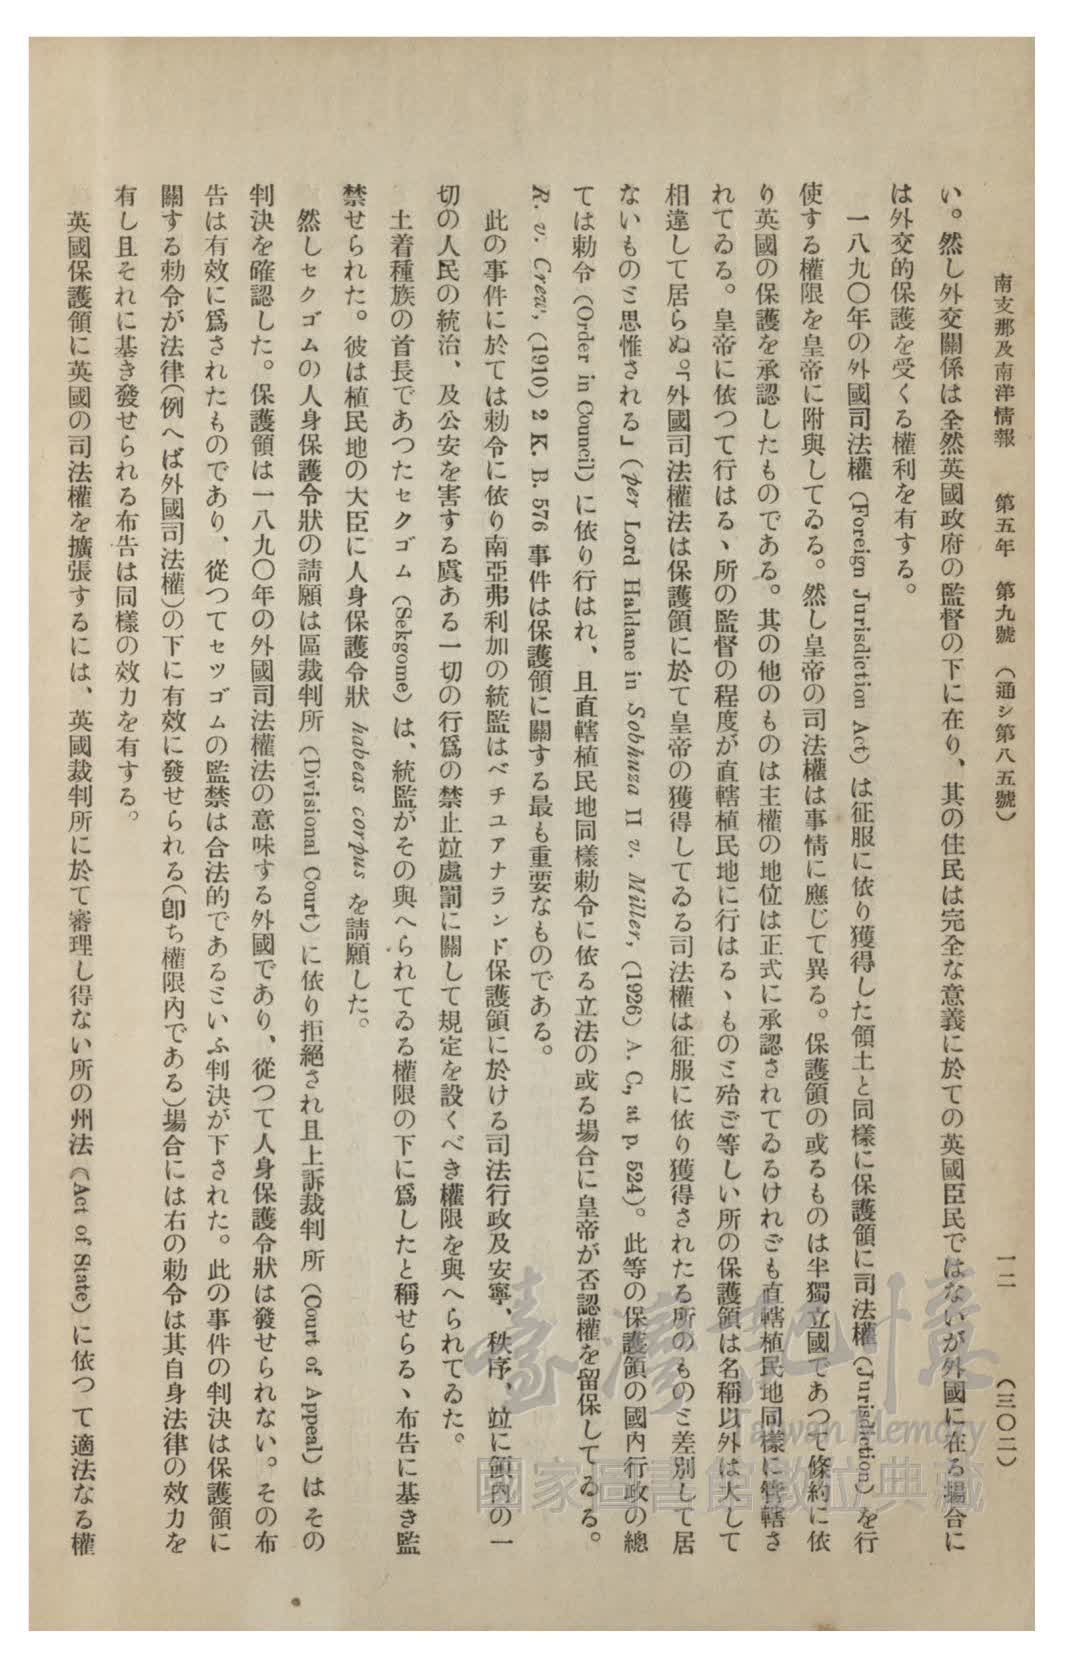 南支那及南洋情報　第五年　第九號　（通シ第八五號）　一二　（三〇二）
い。然し外交關係は全然英國政府の監督の下に在り、其の住民は完全な意義に於ての英國臣民ではないが外國に在る場合に
は外交的保護を受くる權利を有する。
一八九〇年の外國司法權（Foreign Jurisdiction Act）は征服に依り獲得した領土と同樣に保護領に司法權（Jurisdiction）を行
使する權限を皇帝に附與してゐる。然し皇帝の司法權は事情に應じて異る。保護領の或るものは半獨立國であつて條約に依
り英國の保護を承認したものである。其の他のものは主權の地位は正式に承認されてゐるけれども直轄植民地同樣に管轄さ
れてゐる。皇帝に依つて行はるゝ所の監督の程度が直轄植民地に行はるゝものと殆ど等しい所の保護領は名稱以外は大して
相違して居らぬ。「外國司法權法は保護領に於て皇帝の獲得してゐる司法權は征服に依り獲得されたる所のものと差別して居
ないものと思惟される」（per Lord Haldane in Sobhuza II v. Miller, (1926) A. C., at p. 524）。此等の保護領の國內行政の總
ては勅令（Order in Council）に依り行はれ、且直轄植民地同樣勅令に依る立法の或る場合に皇帝が否認權を留保してゐる。
R. v. Crew, (1910) 2 K. B. 576 事件は保護領に關する最も重要なものである。
此の事件に於ては勅令に依り南亞弗利加の統監はベチユアナランド保護領に於ける司法行政及安寧、秩序、竝に領內の一
切の人民の統治、及公安を害する虞ある一切の行爲の禁止竝處罰に關して規定を設くべき權限を與へられてゐた。
土着種族の首長であつたセクゴム（Sekgome）は、統監がその與へられてゐる權限の下に爲したと稱せらるゝ布告に基き監
禁せられた。彼は植民地の大臣に人身保護令狀 habeas corpus を請願した。
然しセクゴムの人身保護令狀の請願は區裁判所（Divisional Court）に依り拒絕され且上訴裁判所（Court of Appeal）はその
判決を確認した。保護領は一八九〇年の外國司法權法の意味する外國であり、從つて人身保護令狀は發せられない。その布
告は有效に爲されたものであり、從つてセツゴムの監禁は合法的であるといふ判決が下された。此の事件の判決は保護領に
關する勅令が法律（例へば外國司法權）の下に有效に發せられる（卽ち權限內である）場合には右の勅令は其自身法律の效力を
有し且それに基き發せられる布告は同樣の效力を有する。
英國保護領に英國の司法權を擴張するには、英國裁判所に於て審理し得ない所の州法（Act of State）に依つて適法なる權
臺灣記憶
Taiwan Memory
國家圖書館數位典藏